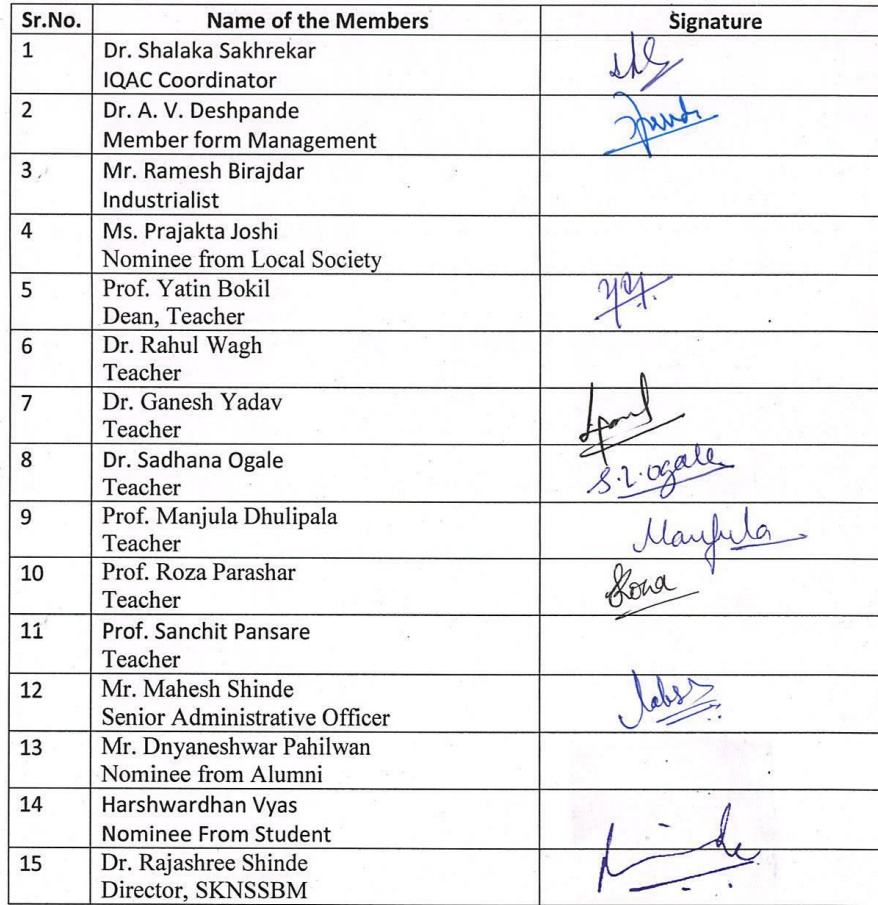 Sr.No. Name of the Members Signature
1 Dr. Shalaka Sakhrekar
IQAC Coordinator
2 Dr. A. V. Deshpande
Member form Management
3 Mr. Ramesh Birajdar
Industrialist
4 Ms. Prajakta Joshi
Nominee from Local Society
5 Prof. Yatin Bokil
Dean, Teacher
6 Dr. Rahul Wagh
Teacher
7 Dr. Ganesh Yadav
Teacher
8 Dr. Sadhana Ogale
Teacher S.L.Ogale
9 Prof. Manjula Dhulipala
Teacher Manjula
10 Prof. Roza Parashar
Teacher
11 Prof. Sanchit Pansare
Teacher
12 Mr. Mahesh Shinde
Senior Administrative Officer
13 Mr. Dnyaneshwar Pahilwan
Nominee from Alumni
14 Harshwardhan Vyas
Nominee From Student
15 Dr. Rajashree Shinde
Director, SKNSSBM